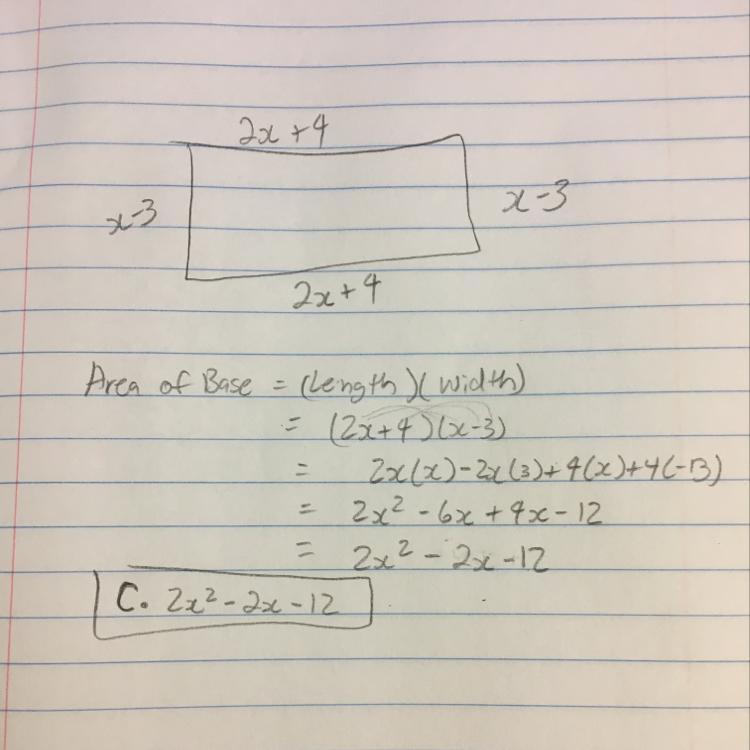 2x + 4
x-3
x-3
2x + 4
Area of Base = (Length)(Width)
= (2x+4)(x-3)
= 2x(x)-2x(3)+4(x)+4(-3)
= 2x² - 6x + 4x - 12
= 2x² - 2x - 12
C. 2x² - 2x - 12